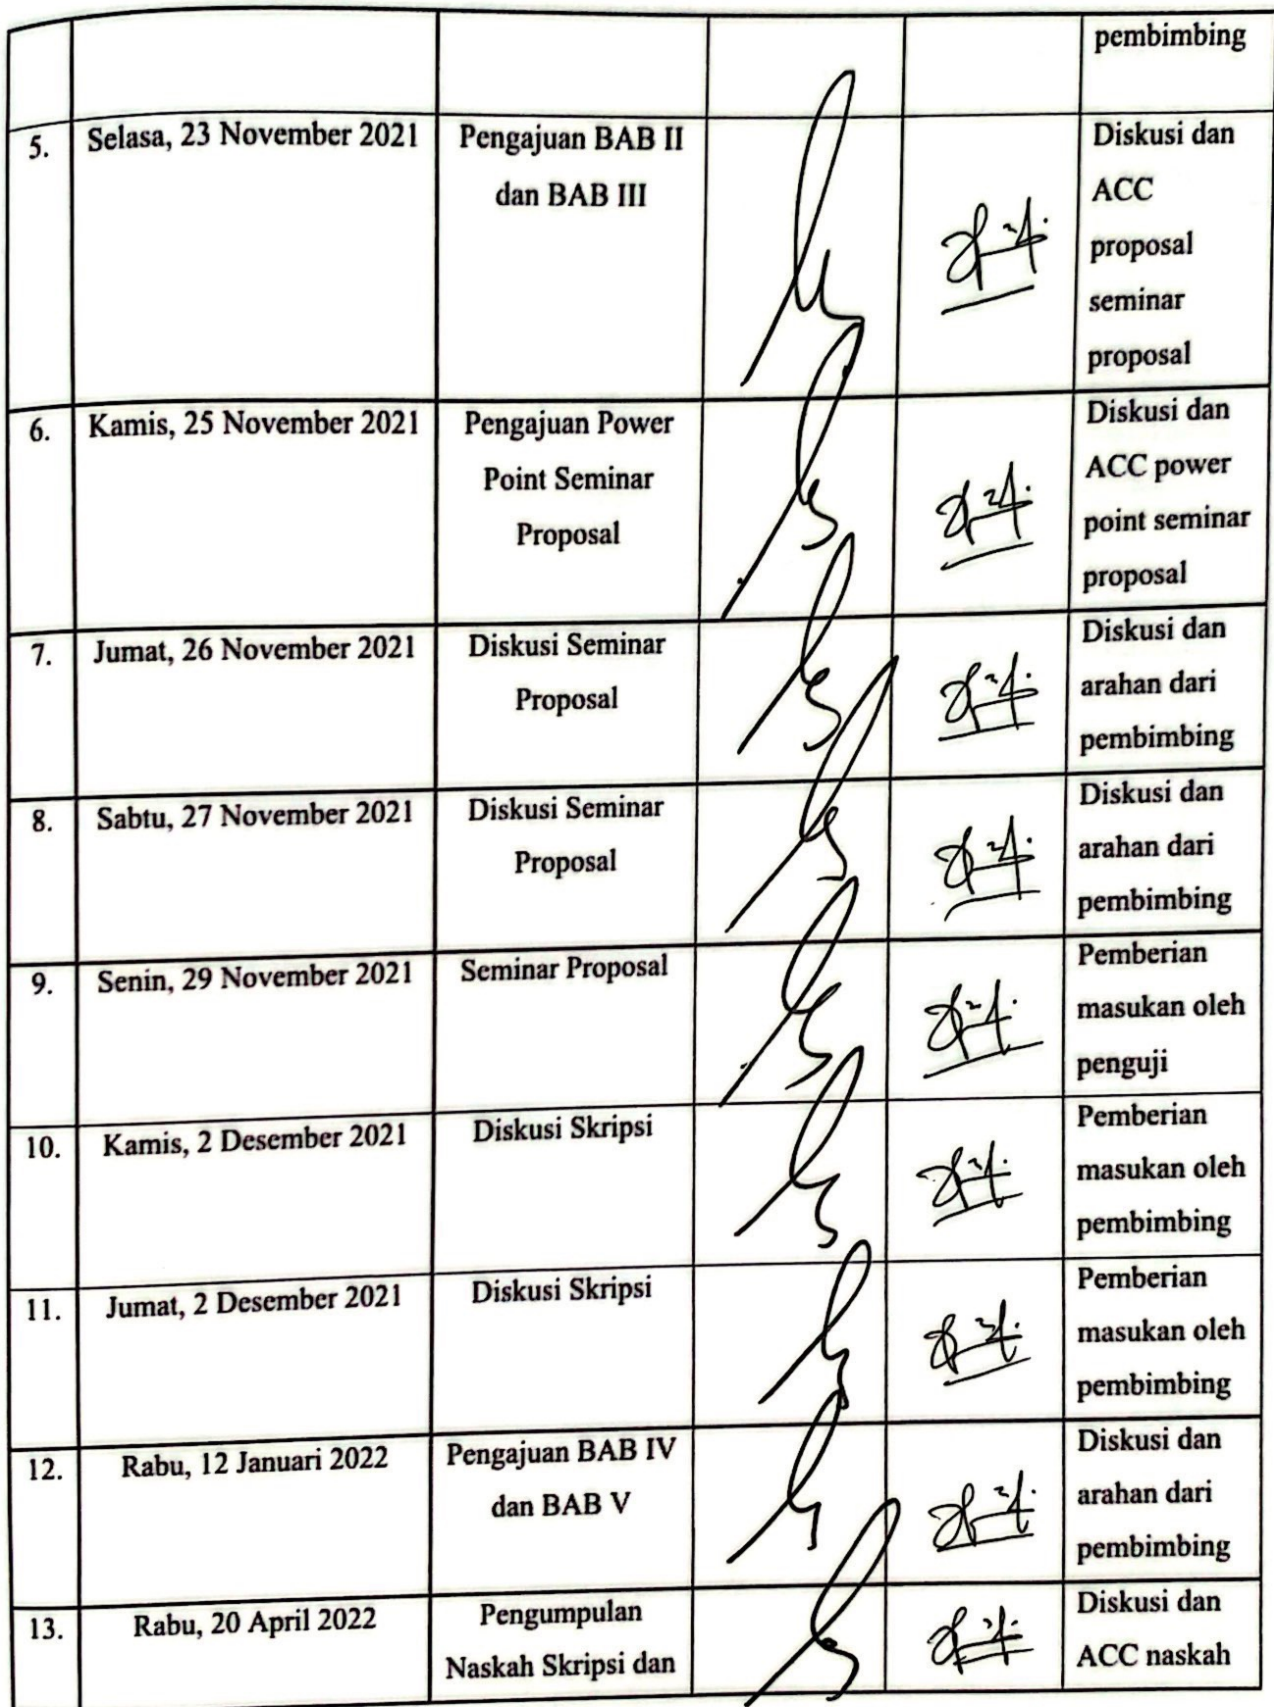 pembimbing
5. Selasa, 23 November 2021 Pengajuan BAB II Diskusi dan
dan BAB III ACC
proposal
seminar
proposal
6. Kamis, 25 November 2021 Pengajuan Power Diskusi dan
Point Seminar ACC power
Proposal point seminar
proposal
7. Jumat, 26 November 2021 Diskusi Seminar Diskusi dan
Proposal arahan dari
pembimbing
8. Sabtu, 27 November 2021 Diskusi Seminar Diskusi dan
Proposal arahan dari
pembimbing
9. Senin, 29 November 2021 Seminar Proposal Pemberian
masukan oleh
penguji
10. Kamis, 2 Desember 2021 Diskusi Skripsi Pemberian
masukan oleh
pembimbing
11. Jumat, 2 Desember 2021 Diskusi Skripsi Pemberian
masukan oleh
pembimbing
12. Rabu, 12 Januari 2022 Pengajuan BAB IV Diskusi dan
dan BAB V arahan dari
pembimbing
13. Rabu, 20 April 2022 Pengumpulan Diskusi dan
Naskah Skripsi dan ACC naskah